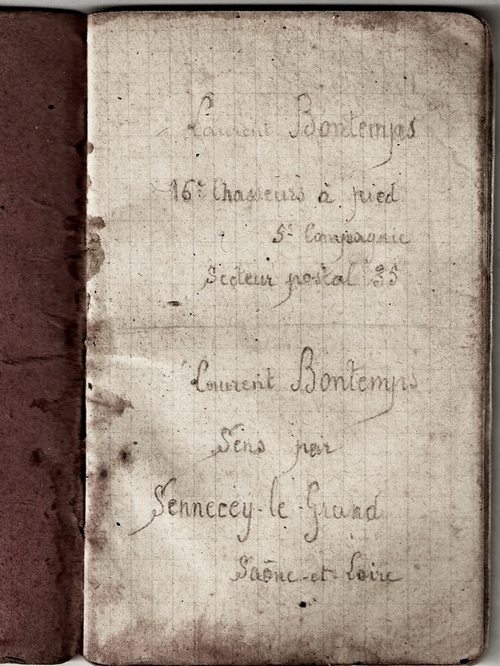 Laurent Bontemps
16e Chasseurs à pied
5e Compagnie
Secteur postal 35
Laurent Bontemps
Sens par
Sennecey-le-Grand
Saône-et-Loire